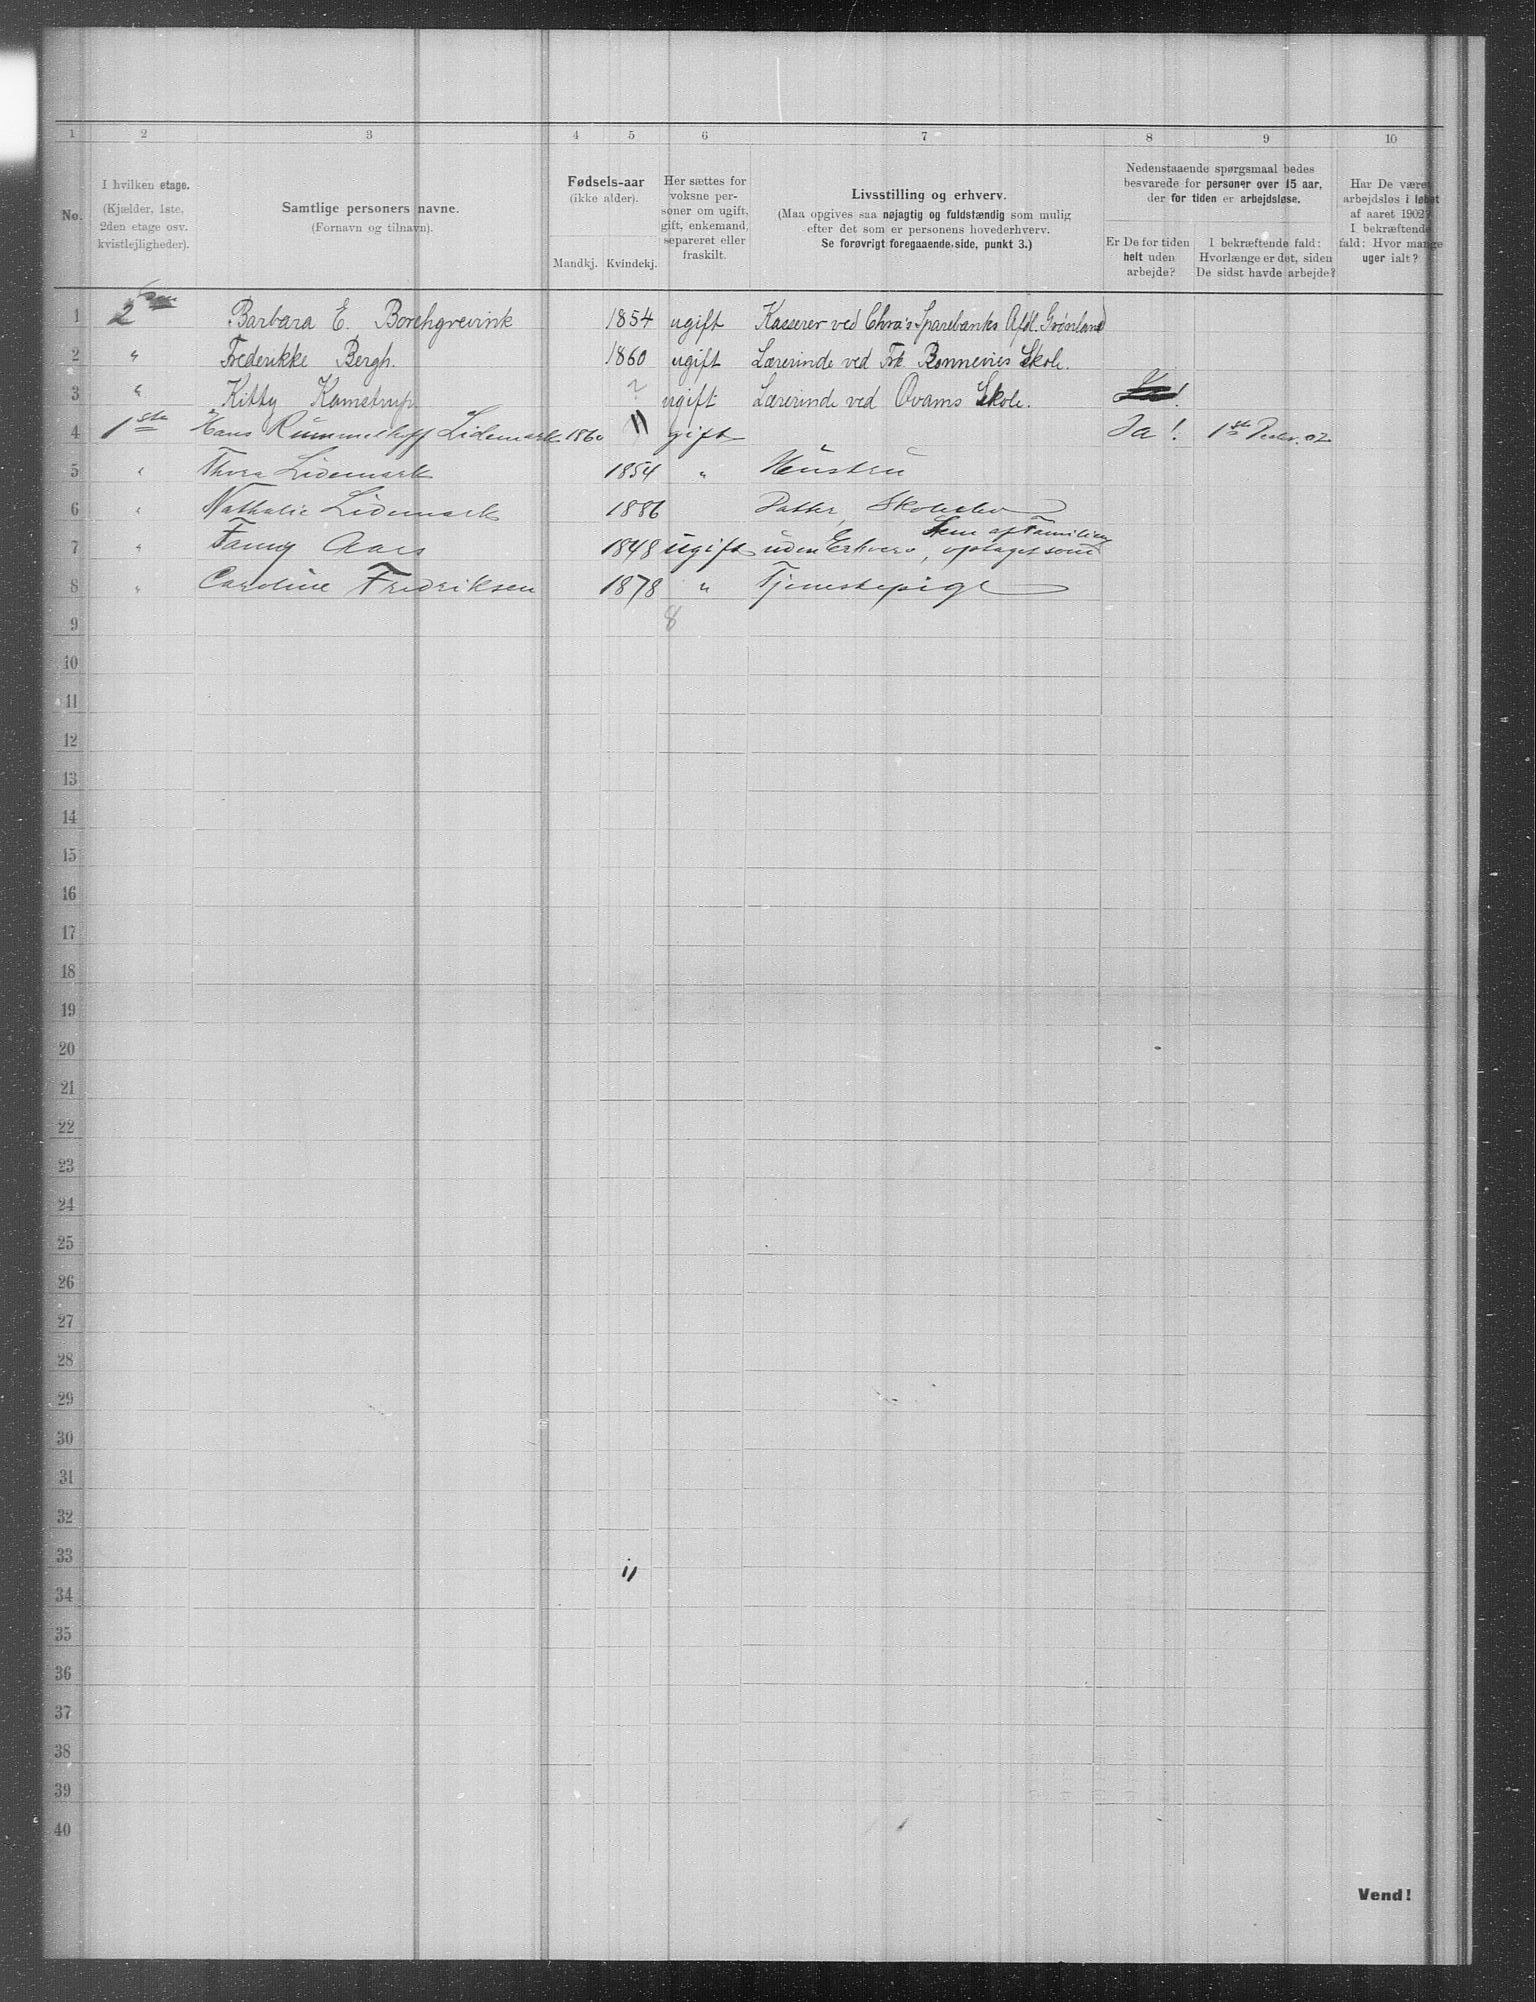 1 2 3 4 5 6 7 8 9 10
No.
I hvilken etage.
(Kjælder, 1ste,
2den etage osv.
kvistlejligheder).
Samtlige personers navne.
(Fornavn og tilnavn).
Fødsels-aar
(ikke alder).
Mandkj. Kvindekj.
Her sættes for
voksne per-
soner om ugift,
gift, enkemand,
separeret eller
fraskilt.
Livsstilling og erhverv.
(Maa opgives saa nøjagtig og fuldstændig som mulig
efter det som er personens hovederhverv.
Se forøvrigt foregaaende side, punkt 3.)
Nedenstaaende spørgsmaal bedes
besvarede for personer over 15 aar,
der for tiden er arbejdsløse.
Er De for tiden
helt uden
arbejde?
I bekræftende fald:
Hvorlænge er det, siden
De sidst havde arbejde?
Har De været
arbejdsløs i løbet
af aaret 1902?
I bekræftende
fald: Hvor mange
uger ialt?
1 2 Barbara E. Borchgrevink 1854 ugift Kasserer ved Chra's Sparebanks Afdl. Grønland
2 " Frederikke Bergh. 1860 ugift Lærerinde ved Frk. Bonnevies Skole.
3 " Kitty Kamstrup ? ugift Lærerinde ved Qvams Skole.
4 1ste Hans Rummelhoff Lidemark 1860 " gift Ja! 1ste 02
5 " Thora Lidemark 1854 " Hustru
6 " Nathalie Lidemark 1886 Datter, Skoleelev
7 " Fanny Aars 1848 ugift uden Erhverv, optaget som
Lem af Familien
8 " Caroline Fredriksen 1878 " Tjenestepige
8
9
10
11
12
13
14
15
16
17
18
19
20
21
22
23
24
25
26
27
28
29
30
31
32
33
34
35
36
37
38
39
40
Vend!